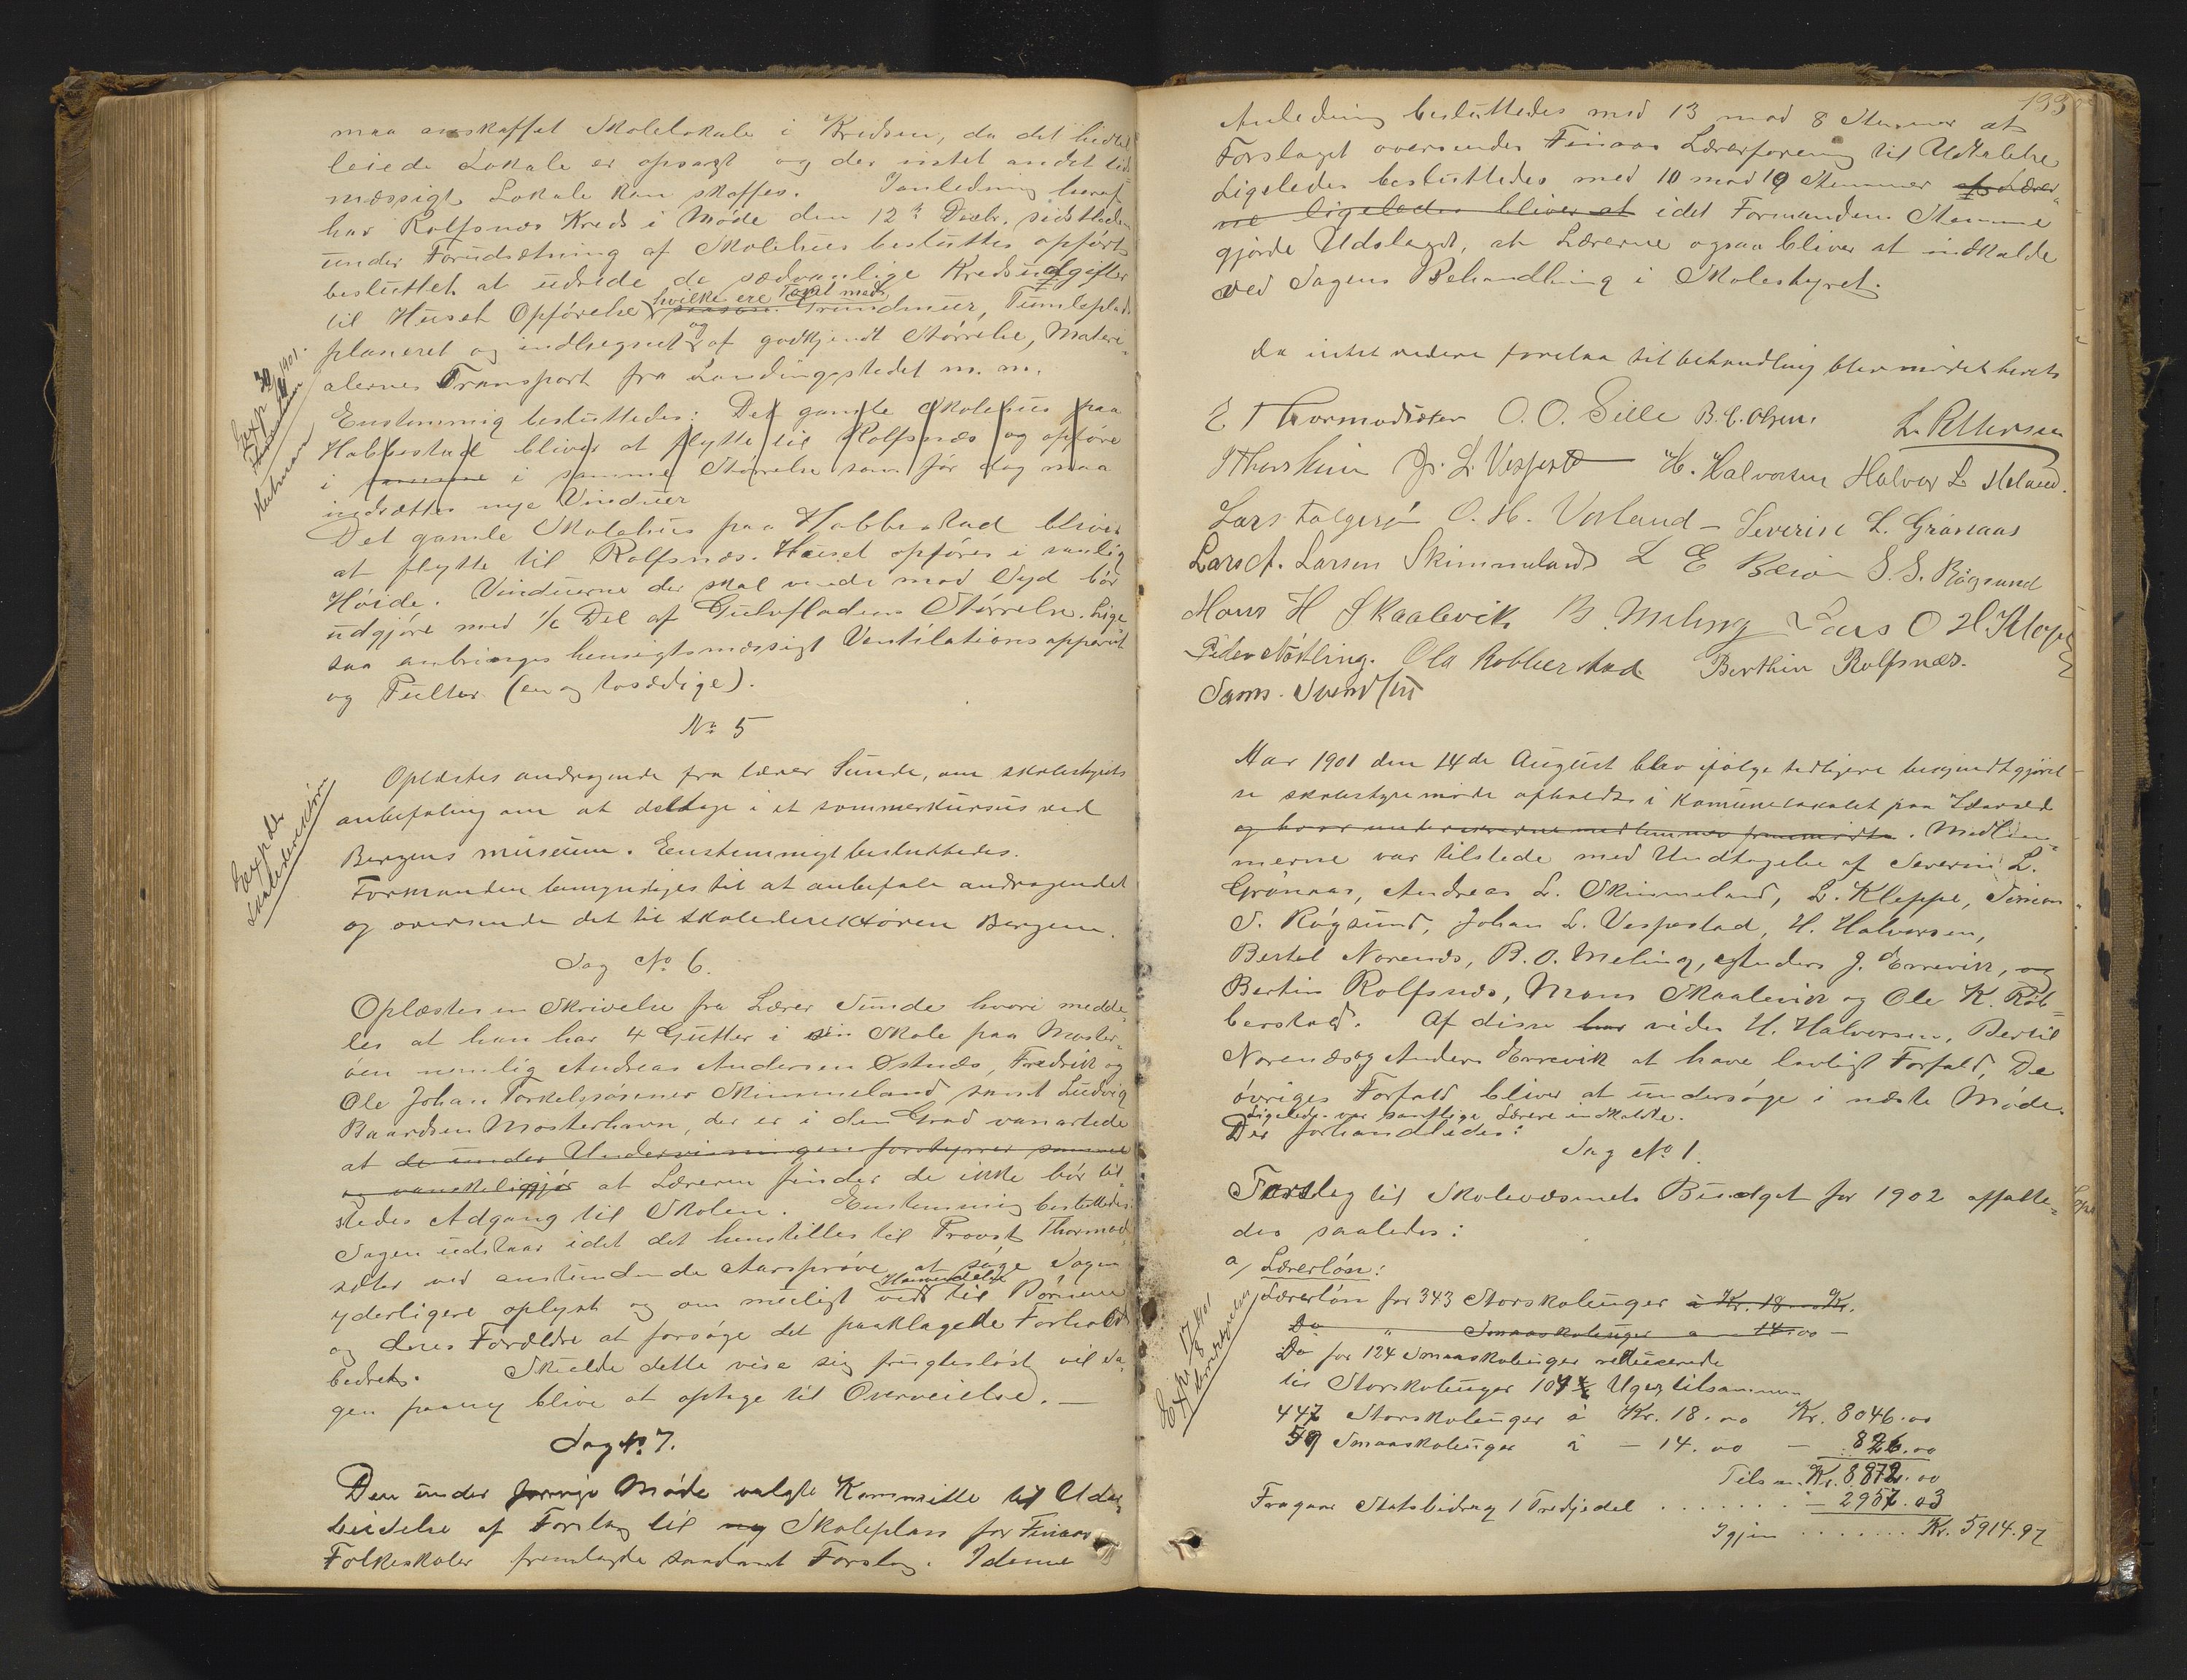 maa anskaffet Skolelokale i Kredsen, da det hidtil
leiede Lokale er opsagt og der intet andet tid-
mæssigt Lokale kan skaffes. I anledning heraf
har Rolfsnæs Kreds i Møde den 12te Decbr. sidstleden
under Forudsætning af Skolehus besluttes opført
besluttet at udrede de sædvanlige Kredsudgifter
til Huset Opførelse hvilke ere Tomt med Grundmur, Tumleplads
planeret og indhegnet og af godkjendt Størrelse, Materi-
alernes Transport fra Landingsstedet m. m.
Enstemmig besluttedes: Det gamle Skolehus paa
Habbestad bliver at flytte til Rolfsnæs og opføre
i samme i samme Størrelse som før dog maa
indsættes nye Vinduer
Det gamle Skolehus paa Habbestad bliver
at flytte til Rolfsnæs. Huset opføres i vanlig
Høide. Vinduerne der skal vende mod Syd bør
udgjøre med 1/6 Del af Gulvfladens Størrelse. Lige
saa anbringes hensigtsmæssigt Ventilationsapparat
og Pulter (en og tosædige).
No 5
Oplæstes andragende fra lærer Sunde, om skolestyrets
anbefaling om at deltage i et sommerkursus ved
Bergens museum. Eenstemmigt besluttedes.
Formanden bemyndiges til at anbefale andragendet
og oversende det til skoledirektøren Bergen.
Exped
skoledirektør
Sag No 6.
Oplæstes en Skrivelse fra Lærer Sunde hvori medde-
les at han har 4 Gutter i sin Skole paa Moster-
øen nemlig Andreas Andersen Østnæs, Fredrik og
Ole Johan Torkelssønner Skimmeland samt Ludvig
Baardsen Mosterhavn, der er i den Grad vanartede
at de under Undervisningen forstyrrer samme
og vanskeliggjør at Læreren finder de ikke bør til-
stedes Adgang til Skolen. Enstemmig besluttedes:
Sagen udstaar idet det henstilles til Provst Thormod-
sæter ved anstundende Aarsprøve at søge Sagen
yderligere oplyst og om muligt ved Henvendelse til Børnene
og deres Forældre at forsøge det paaklagede Forhold
bedret. Skulde dette vise sig frugtesløst vil Sa-
gen paany blive at optage til Overveielse. —
Sag No 7.
Den under forrige Møde valgte Kommitte til Udar-
beidelse af Forslag til ny Skoleplan for Finaas
Folkeskoler fremlagde saadant Forslag. I denne
133
Anledning besluttedes med 13 mod 8 Stemmer at
Forslaget oversendes Finaas Lærerforening til Udtalelse
Ligeledes besluttedes med 10 mod 10 Stemmer at Lærer-
ne ligeledes bliver at idet Formandens Stemme
gjorde Udslaget, at Lærerne ogsaa bliver at indkalde
ved Sagens Behandling i Skolestyret.
Da intet videre forelaa til behandling blev mødet hævet
E Thormodsæter O. O. Sille B. C. Olsen. L. Pettersen
J. L. Vespest H. Halvorsen Halvor L. Meland.
Lars Folgerø O. H. Vorland — Severin L. Grønaas
Lars A. Larsen Skimmeland L E S. S. Røgsund
Mons H Skaalevik B. Meling Lars O H. Klep
Peder Nøtling. Ola Røbberstad Berthin Rolfsnæs.
Sams. Svendsen
Aar 1901 den 14de August blev ifølge tidligere bekjendtgjørel-
se skolestyremøde afholdt i Komunelokalet paa Leirvåg
og hvor undertegnede medlemmer fremmødte. Medlem-
merne var tilstede med Undtagelse af Severin L.
Grønaas, Andreas L. Skimmeland, L. Kleppe, Simon
S. Røgsund, Johan L. Vespestad, H. Halvorsen,
Bertel Norenæs, B. O. Meling, Anders J. Ervevik, og
Bertin Rolfsnæs, Mons Skaalevik og Ole K. Røb-
berstad. Af disse har vides H. Halvorsen, Bertil
Norenæs og Anders Ervevik at have lovligt Forfald. De
øvriges Forfald bliver at undersøge i næste Møde.
Ligeledes var samtlige Lærere indkaldte.
Der forhandledes:
Sag No 1.
Forslag til Skolevæsenets Budget for 1902 affatte-
des saaledes:
a/ Lærerløn:
Lærerløn for 343 Storskoleuger à Kr. 18 Kr.
Do " Smaaskoleuger a 14.00 —
Do for 124 Smaaskoleuger reducerede
til Storskoleuger 104 Uger tilsammen
447 Storskoleuger à Kr. 18.00 Kr. 8046.00
59 Smaaskoleuger à — 14.00 — 826.00
Tilsm. Kr. 8872.00
Fragaar Statsbidrag 1 Tredjedel . . . . . . . — 2957.03
Igjen . . . . . . . Kr. 5914.97